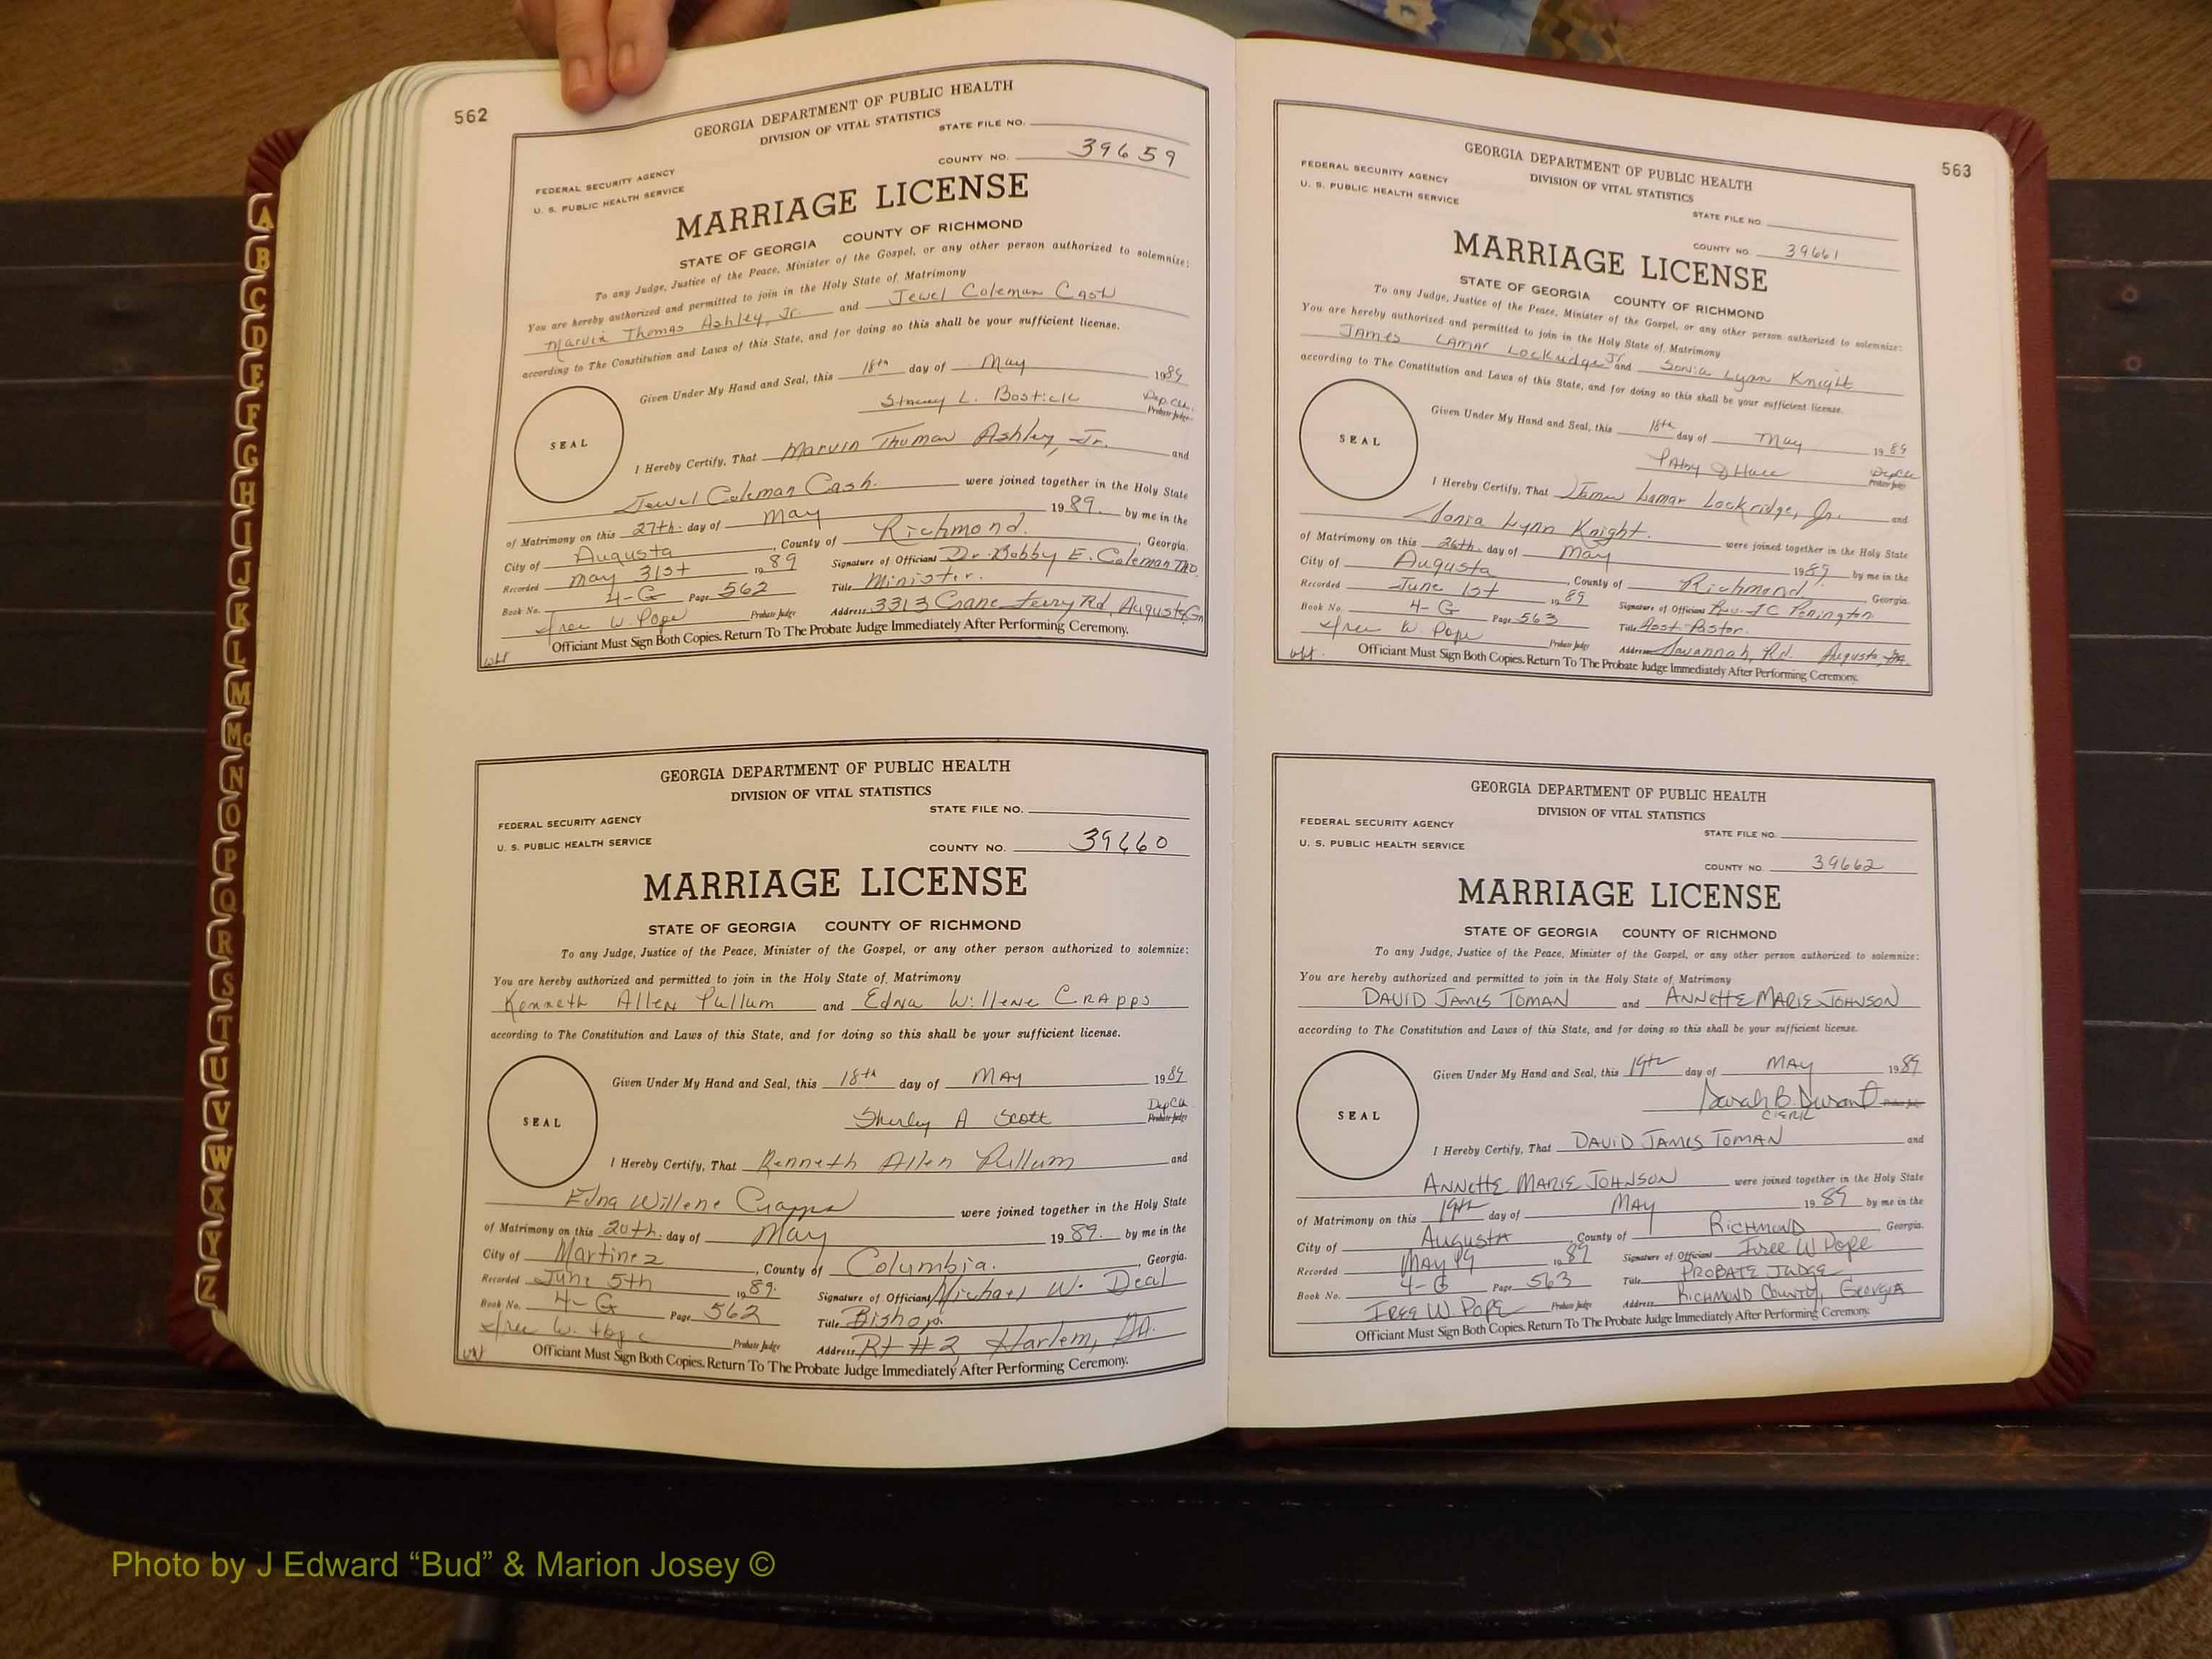 A
B
C
D
E
F
G
H
I
J
K
L
M
Mc
N
O
P
Q
R
S
T
U
V
W
X
Y
Z
562
GEORGIA DEPARTMENT OF PUBLIC HEALTH
DIVISION OF VITAL STATISTICS
STATE FILE NO.
FEDERAL SECURITY AGENCY
U. S. PUBLIC HEALTH SERVICE
COUNTY NO. 39659
MARRIAGE LICENSE
STATE OF GEORGIA COUNTY OF RICHMOND
To any Judge, Justice of the Peace, Minister of the Gospel, or any other person authorized to solemnize:
You are hereby authorized and permitted to join in the Holy State of Matrimony
Marvin Thomas Ashley, Jr. and Jewel Coleman Cash
according to The Constitution and Laws of this State, and for doing so this shall be your sufficient license.
Given Under My Hand and Seal, this 18th day of May 1989
L. Bostick Dep. Clk. Probate Judge
SEAL
I Hereby Certify, That Marvin Thomas Ashley, Jr. and
Jewel Coleman Cash. were joined together in the Holy State
of Matrimony on this 27th. day of May 1989. by me in the
City of Augusta, County of Richmond. Georgia.
Recorded May 31st 1989 Signature of Officiant Dr. Bobby E. Coleman
Book No. 4-G Page 562 Title Minister.
W. Pope Probate Judge Address 3313 Crane Ferry Rd, Augusta, Ga
Officiant Must Sign Both Copies. Return To The Probate Judge Immediately After Performing Ceremony.
GEORGIA DEPARTMENT OF PUBLIC HEALTH
DIVISION OF VITAL STATISTICS
STATE FILE NO.
FEDERAL SECURITY AGENCY
U. S. PUBLIC HEALTH SERVICE
COUNTY NO. 39660
MARRIAGE LICENSE
STATE OF GEORGIA COUNTY OF RICHMOND
To any Judge, Justice of the Peace, Minister of the Gospel, or any other person authorized to solemnize:
You are hereby authorized and permitted to join in the Holy State of Matrimony
Kenneth Allen Pullum and Edna Willene Crapps
according to The Constitution and Laws of this State, and for doing so this shall be your sufficient license.
Given Under My Hand and Seal, this 18th day of May 1989
Shirley A Scott Dep Clk Probate Judge
SEAL
I Hereby Certify, That Kenneth Allen Pullum and
Edna Willene Crapps were joined together in the Holy State
of Matrimony on this 20th. day of May 1989. by me in the
City of Martinez, County of Columbia. Georgia.
Recorded June 5th 1989. Signature of Officiant Michael W. Deal
Book No. 4-G Page 562 Title Bishop.
W. Pope Probate Judge Address Rt #2, Harlem, GA.
Officiant Must Sign Both Copies. Return To The Probate Judge Immediately After Performing Ceremony.
563
GEORGIA DEPARTMENT OF PUBLIC HEALTH
DIVISION OF VITAL STATISTICS
FEDERAL SECURITY AGENCY
U. S. PUBLIC HEALTH SERVICE
STATE FILE NO.
COUNTY NO. 39661
MARRIAGE LICENSE
STATE OF GEORGIA COUNTY OF RICHMOND
To any Judge, Justice of the Peace, Minister of the Gospel, or any other person authorized to solemnize:
You are hereby authorized and permitted to join in the Holy State of Matrimony
James Lamar Lockridge Jr and Sonia Lynn Knight
according to The Constitution and Laws of this State, and for doing so this shall be your sufficient license.
Given Under My Hand and Seal, this 18th day of May 1989
Dep Clk Probate Judge
SEAL
I Hereby Certify, That James Lamar Lockridge, Jr. and
Sonia Lynn Knight. were joined together in the Holy State
of Matrimony on this 26th. day of May 1989 by me in the
City of Augusta, County of Richmond. Georgia.
Recorded June 1st 1989 Signature of Officiant Rev. J C Penington
Book No. 4-G Page 563 Title Asst. Pastor.
W. Pope Probate Judge Address Savannah, Rd. Augusta, GA.
Officiant Must Sign Both Copies. Return To The Probate Judge Immediately After Performing Ceremony.
GEORGIA DEPARTMENT OF PUBLIC HEALTH
DIVISION OF VITAL STATISTICS
FEDERAL SECURITY AGENCY
STATE FILE NO.
U. S. PUBLIC HEALTH SERVICE
COUNTY NO. 39662
MARRIAGE LICENSE
STATE OF GEORGIA COUNTY OF RICHMOND
To any Judge, Justice of the Peace, Minister of the Gospel, or any other person authorized to solemnize:
You are hereby authorized and permitted to join in the Holy State of Matrimony
DAVID JAMES TOMAN and ANNETTE MARIE JOHNSON
according to The Constitution and Laws of this State, and for doing so this shall be your sufficient license.
Given Under My Hand and Seal, this 19th day of MAY 1989
Sarah B. Durant
CLERK
SEAL
I Hereby Certify, That DAVID JAMES TOMAN and
ANNETTE MARIE JOHNSON were joined together in the Holy State
of Matrimony on this 19th day of MAY 1989 by me in the
City of AUGUSTA, County of RICHMOND Georgia.
Recorded MAY 19 1989 Signature of Officiant Isree W Pope
Book No. 4-G Page 563 Title PROBATE JUDGE
W. POPE Probate Judge Address RICHMOND COUNTY, GEORGIA
Officiant Must Sign Both Copies. Return To The Probate Judge Immediately After Performing Ceremony.
Photo by J Edward “Bud” & Marion Josey ©